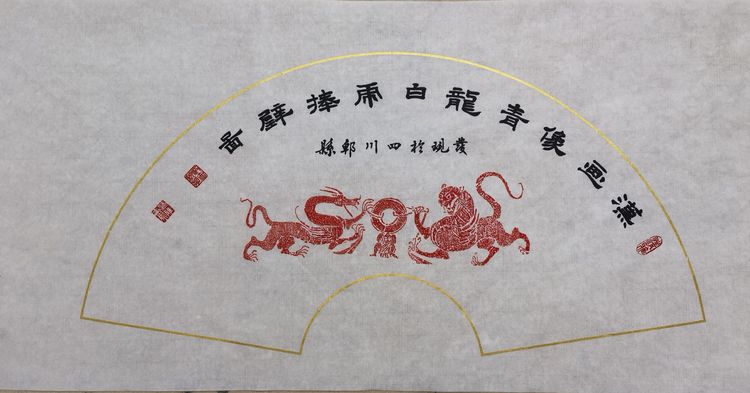 漢画像青龍白虎捧璧啚
發現於四川郫縣